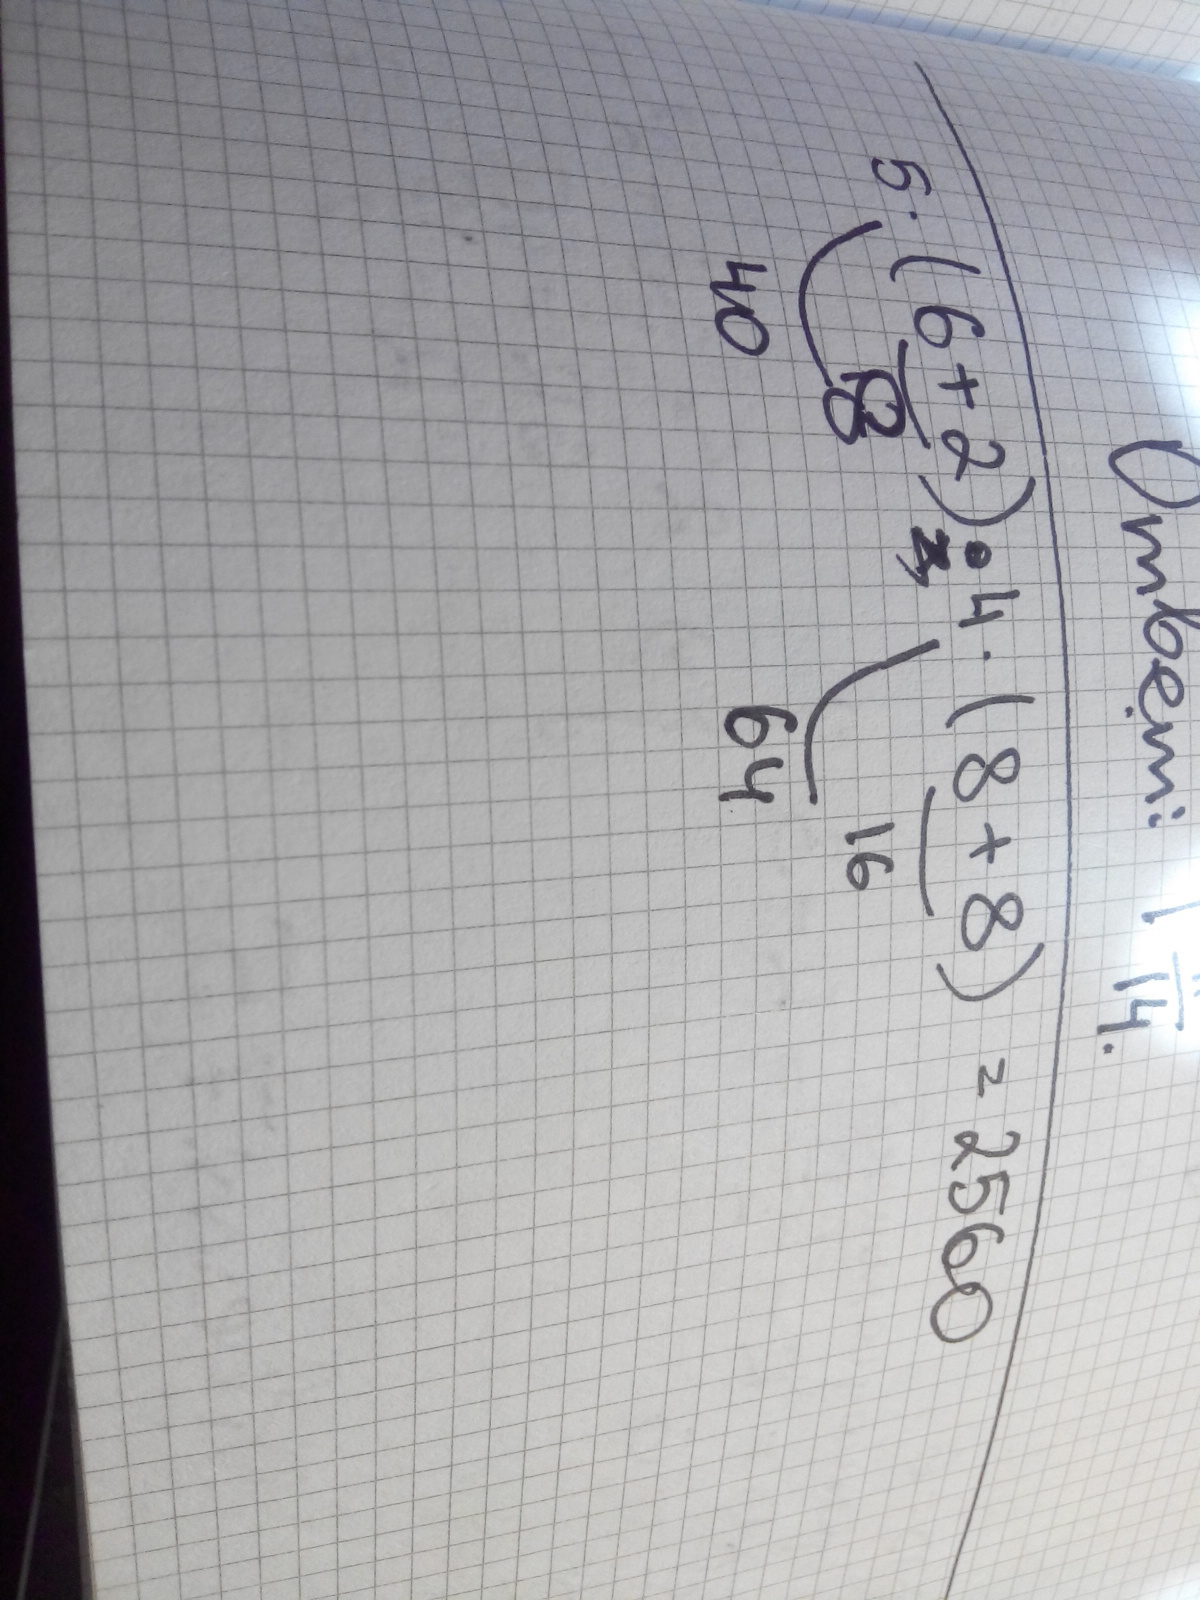 Ответ: 1 14.
5·(6+2)·4·(8+8) = 2560
8 16
40 64